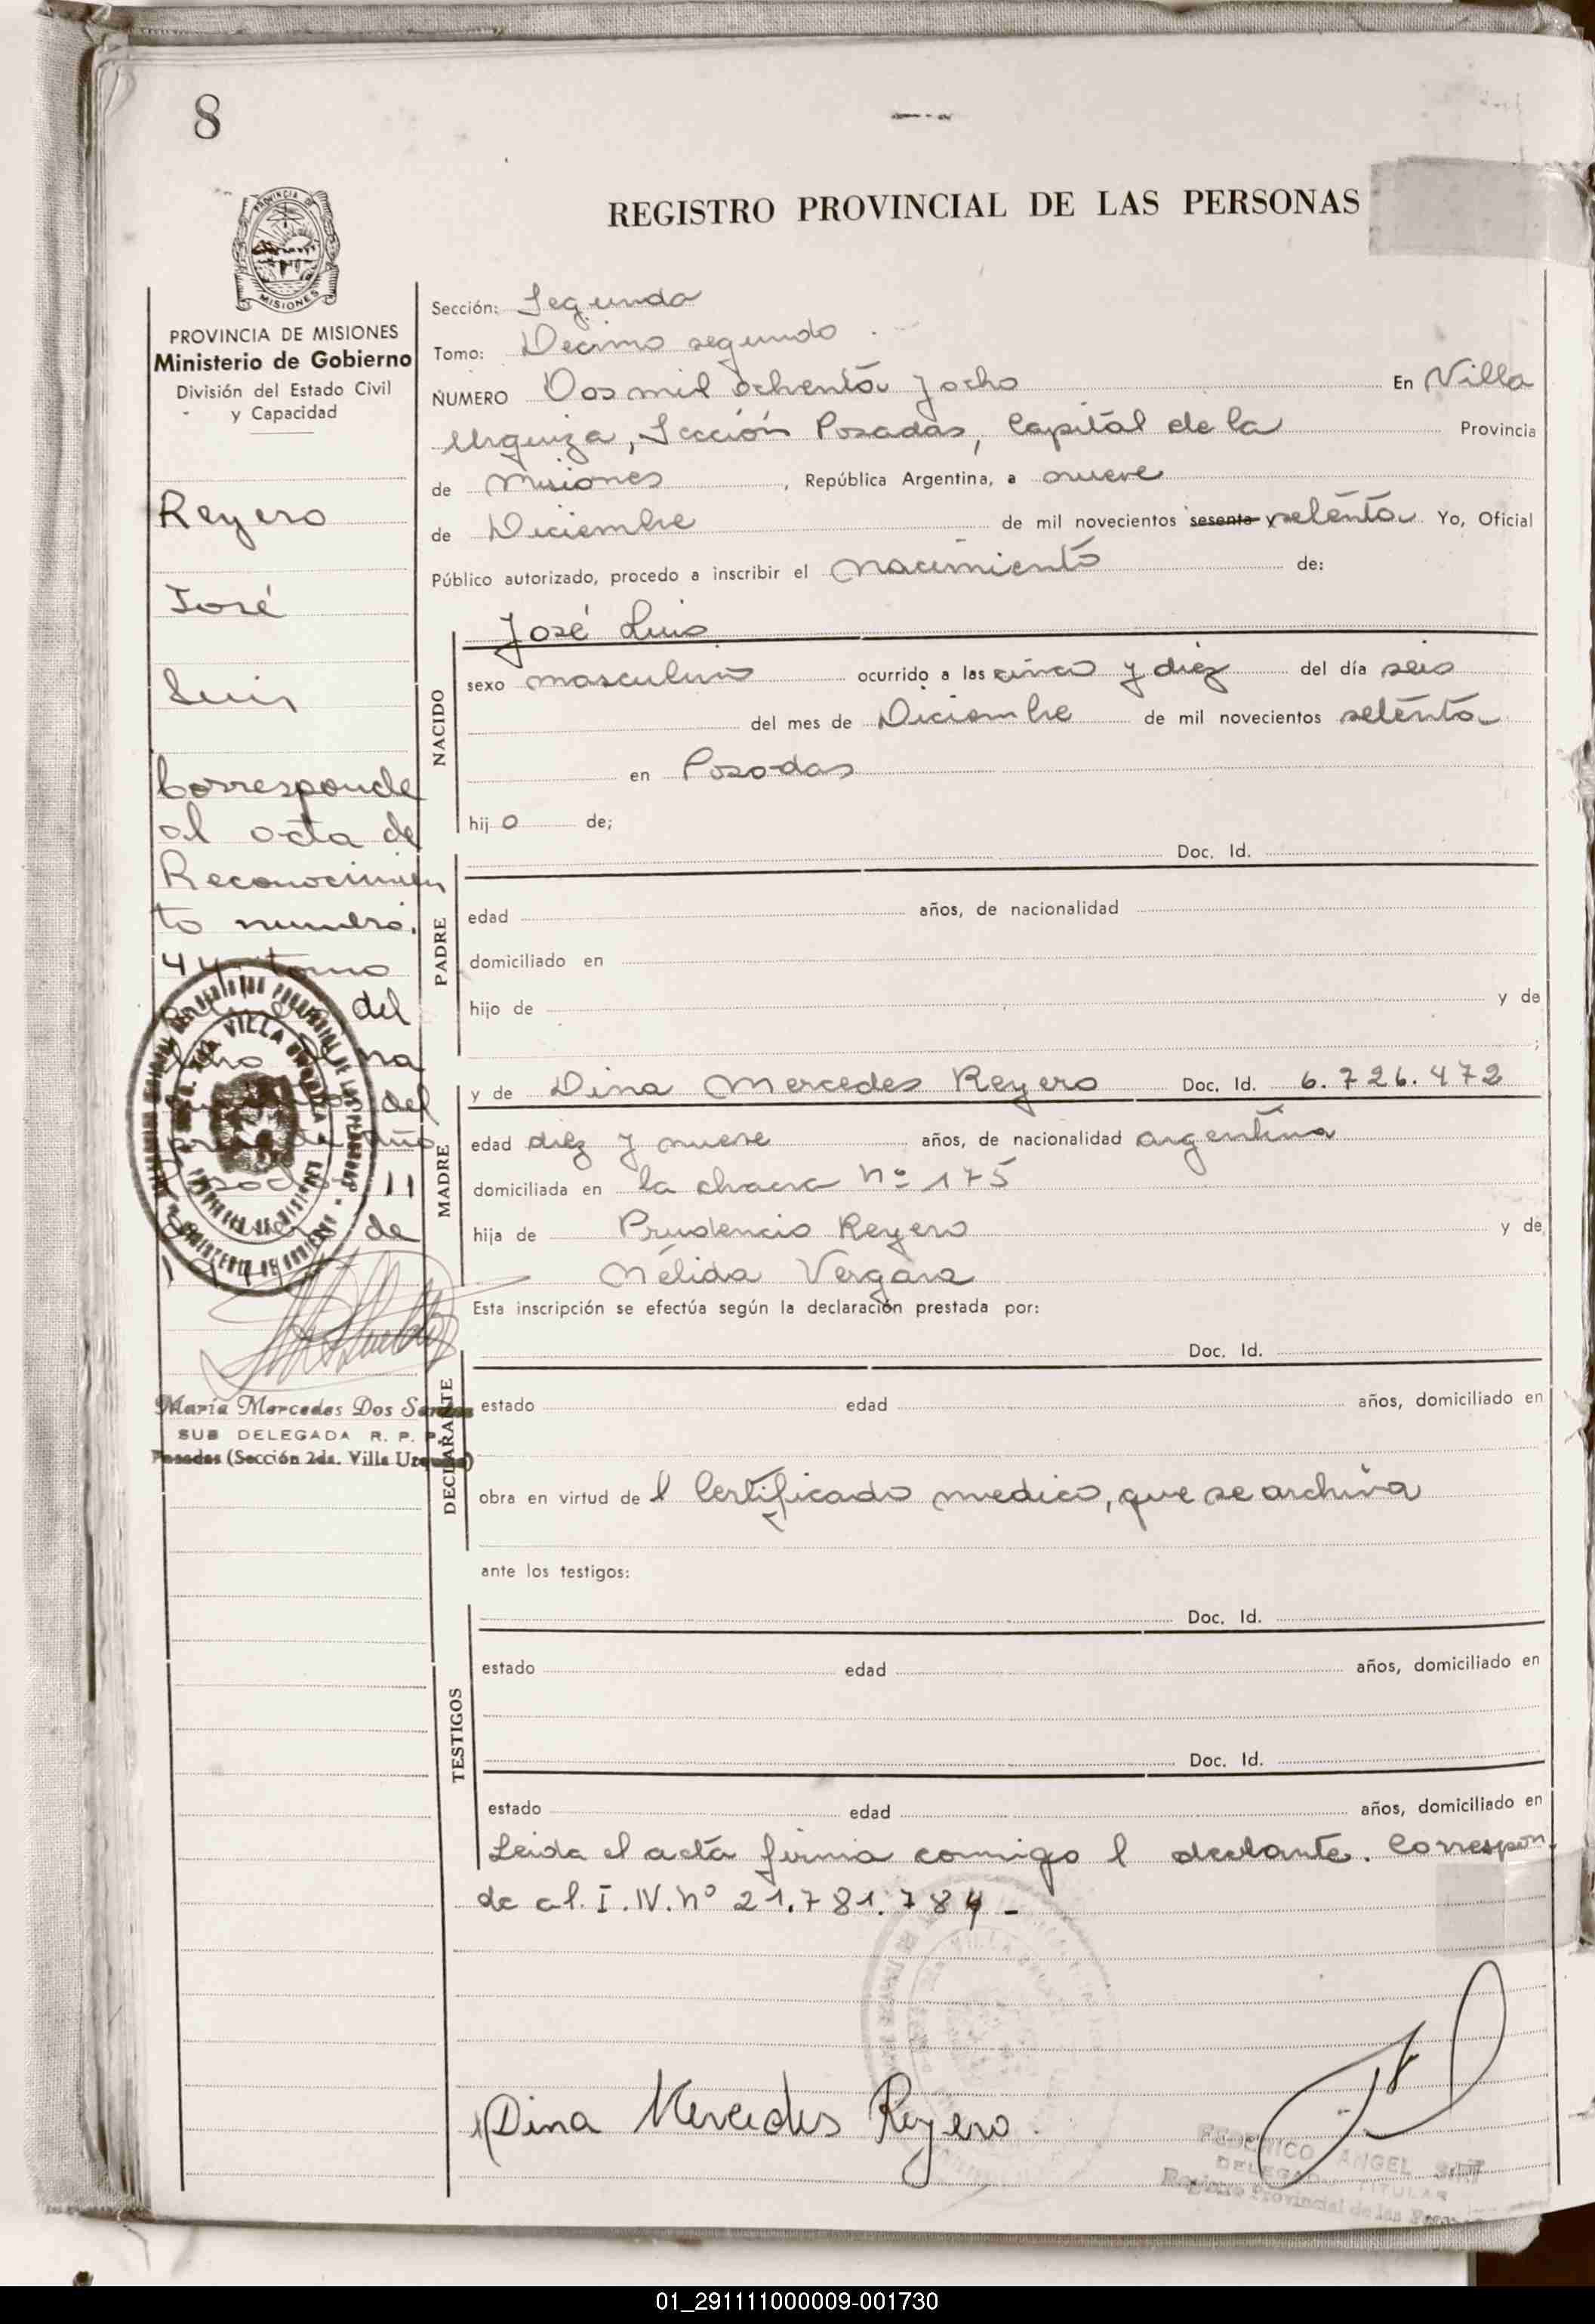 8
REGISTRO PROVINCIAL DE LAS PERSONAS
PROVINCIA DE
MISIONES
PROVINCIA DE MISIONES
Ministerio de Gobierno
División del Estado Civil
y Capacidad
Reyero
José
Luis
Corresponde
al acta de
Reconocimien
to numero
44 tomo
del
na
del
año
11
de
María Mercedes Dos Santos
SUB DELEGADA R. P. P.
Posadas (Sección 2da. Villa Urquiza)
Sección: Segunda
Tomo: Decimo segundo
NUMERO Dos mil ochenta y ocho En Villa
Urquiza, Sección Posadas, Capital de la Provincia
de Misiones, República Argentina, a nueve
de Diciembre de mil novecientos sesenta y setenta Yo, Oficial
Público autorizado, procedo a inscribir el nacimiento de:
NACIDO
José Luis
sexo masculino ocurrido a las cinco y diez del día seis
del mes de Diciembre de mil novecientos setenta
en Posadas
hijo de;
PADRE
Doc. Id.
edad años, de nacionalidad
domiciliado en
hijo de y de
;
MADRE
y de Dina Mercedes Reyero Doc. Id. 6.726.472
edad diez y nueve años, de nacionalidad argentina
domiciliada en la chacra Nº 175
hija de Prudencio Reyero y de
Nélida Vergara
Esta inscripción se efectúa según la declaración prestada por:
DECLARANTE
Doc. Id.
estado edad años, domiciliado en
obra en virtud de l Certificado medico, que se archiva
ante los testigos:
TESTIGOS
Doc. Id.
estado edad años, domiciliado en
Doc. Id.
estado edad años, domiciliado en
Leida el acta firma conmigo l declante. Correspon
de al. I.N. Nº 21.781.784 -
Dina Mercedes Reyero.
FEDERICO ANGEL
DELEGADO TITULAR
Registro Provincial de las
01_291111000009-001730